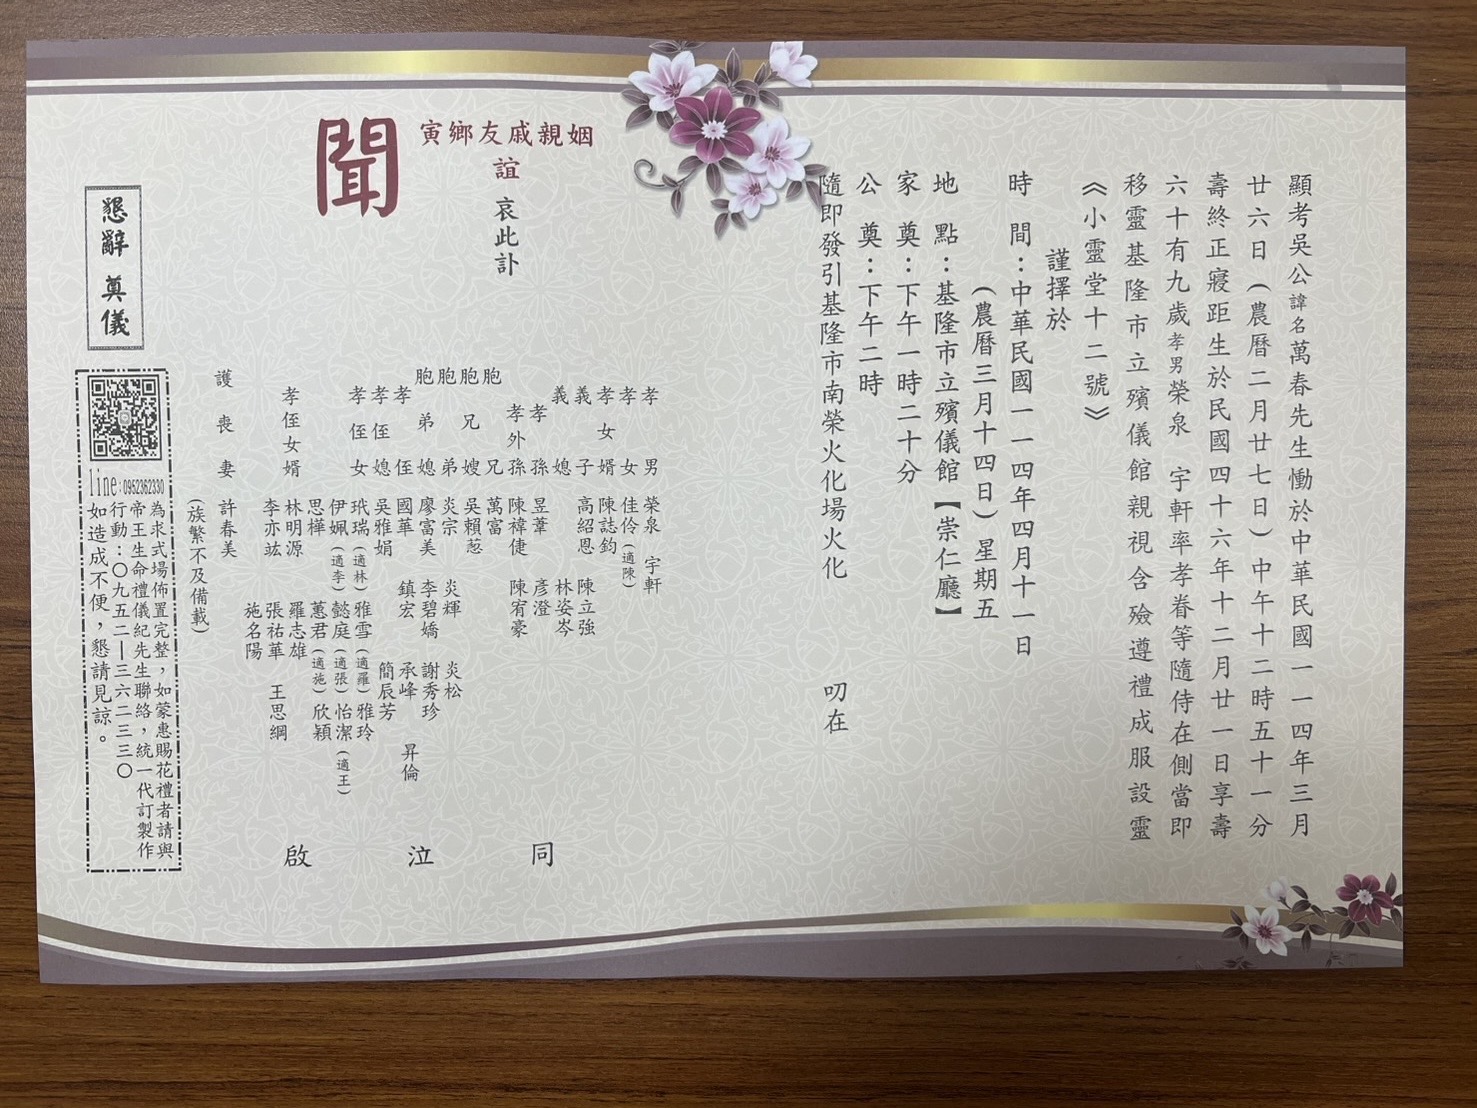 顯考吳公諱名萬春先生慟於中華民國一一四年三月
廿六日(農曆二月廿七日)中午十二時五十一分
壽終正寢距生於民國四十六年十二月廿一日享壽
六十有九歲孝男榮泉 宇軒率孝眷等隨侍在側當即
移靈基隆市立殯儀館親視含殮遵禮成服設靈
《小靈堂十二號》
謹擇於
時 間：中華民國一一四年四月十一日
(農曆三月十四日)星期五
地 點：基隆市立殯儀館【崇仁廳】
家 奠：下午一時二十分
公 奠：下午二時
隨即發引基隆市南榮火化場火化 叨在
姻親戚友鄉寅
誼 哀此訃
聞
孝男 榮泉 宇軒
孝女 佳伶(適陳)
孝女婿 陳誌鈞
義子 高紹恩 陳立強
義媳 林姿岑
孝孫 昱葦 彥澄
孝外孫 陳禕倢 陳宥豪
胞兄 萬富
胞兄嫂 吳賴惹
胞弟 炎宗 炎輝 炎松
胞弟媳 廖富美 李碧嬌 謝秀珍
孝侄 國華 鎮宏 承峰 昇倫
孝侄媳 吳雅娟 簡辰芳
孝侄女 玳瑞(適林) 雅雪(適羅) 雅玲
伊姵(適李) 懿庭(適張) 怡潔(適王)
思樺 蕙君(適施) 欣穎
孝侄女婿 林明源 羅志雄
李亦竑 張祐華 王思綱
施名陽
護喪妻 許春美
(族繁不及備載)
同 泣 啟
懇辭 奠儀
line:0952362330
為求式場佈置完整，如蒙惠賜花禮者請與
帝王生命禮儀紀先生聯絡，統一代訂製作
行動：〇九五二—三六二三三〇
如造成不便，懇請見諒。